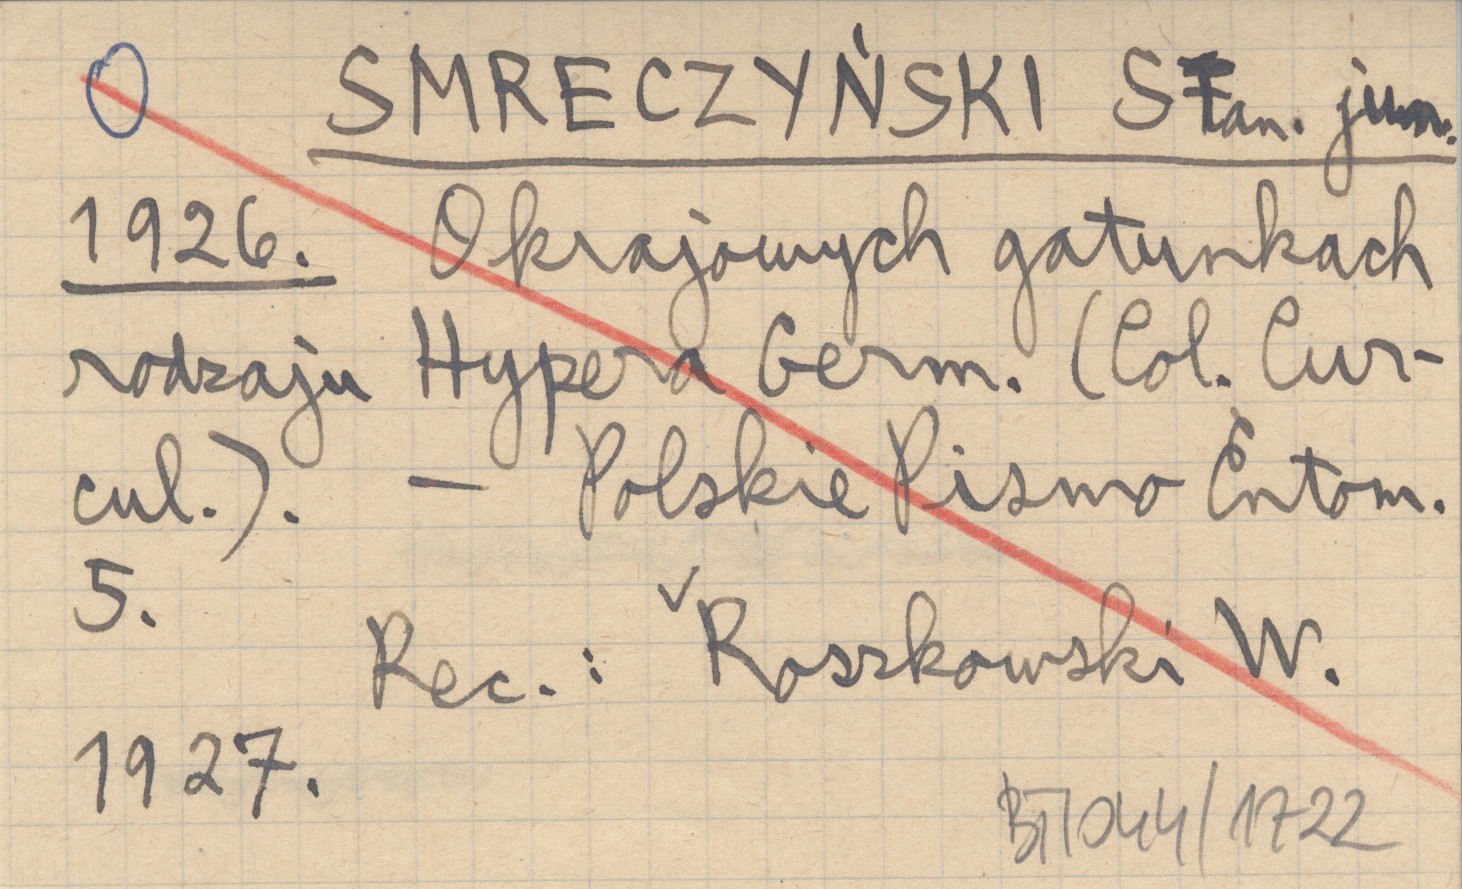 SMRECZYŃSKI Stan. jun.
1926. O krajowych gatunkach
rodzaju Hypera Germ. (Col. Cur-
cul.). — Polskie Pismo Entom.
5.
Rec.: Roszkowski W.
1927.
BT/044/1722